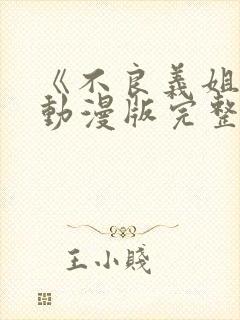 《不良義姐
動漫版完整
王小賤